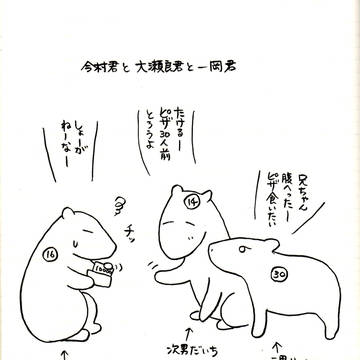 今村君と大瀬良君と一岡君
兄ちゃん
腹へったー
ピザ食いたい
たけるー
ピザ30人前
とろうよ
しょーが
ねーなー
チッ
14
16
30
次男だいち